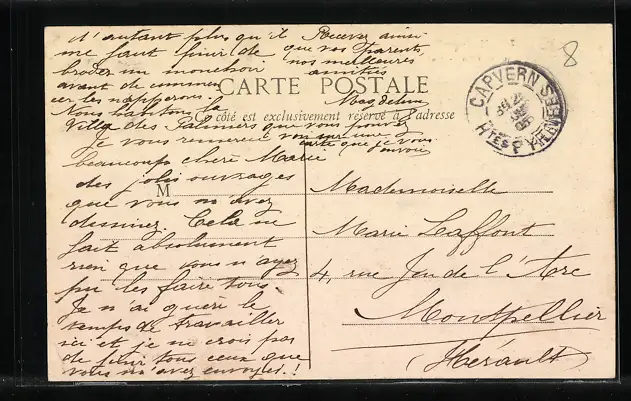 Je vous remercie
beaucoup chère Marie
des jolis ouvrages
que vous m'avez
dessinez. Cela ne
fait absolument
rien que vous n'ayez
pu les faire tous.
Je n'ai guère le
temps de travailler
ici et je ne crois pas
de finir tous ceux que
vous m'avez envoyés.!
d'autant plus qu'il
me faut finir de
broder un mouchoir
avant de commen
cer les napperons.
Nous habitons la
Villa des Palmiers que vous pouvez
voir sur une
carte que je vous
envoie
Recevez ainsi
que vos parents
nos meilleures
amitiés
Magdeleine
CARTE POSTALE
Ce côté est exclusivement réservé à l'adresse
M
Mademoiselle
Marie Laffont
4, rue Jeu de l'Arc
Montpellier
(Hérault)
CAPVERN
HTES PYRÉNÉES
8